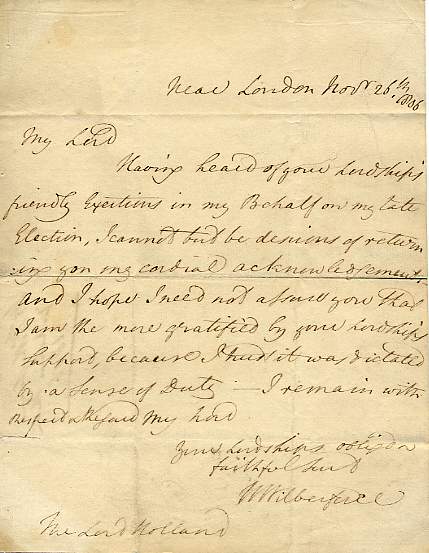 Near London Novr 26.th
1806
My Lord
Having heard of your Lordship's
friendly Exertions in my Behalf on my late
Election, I cannot but be desirous of return
:ing you my cordial acknowledgement,
and I hope I need not assure you that
I am the more gratified by your Lordships
Support, because I trust it was dictated
by a Sense of Duty — I remain with
respect & Regard My Lord
Your Lordships oblig'd &
faithful Servt
W Wilberforce
The Lord Holland